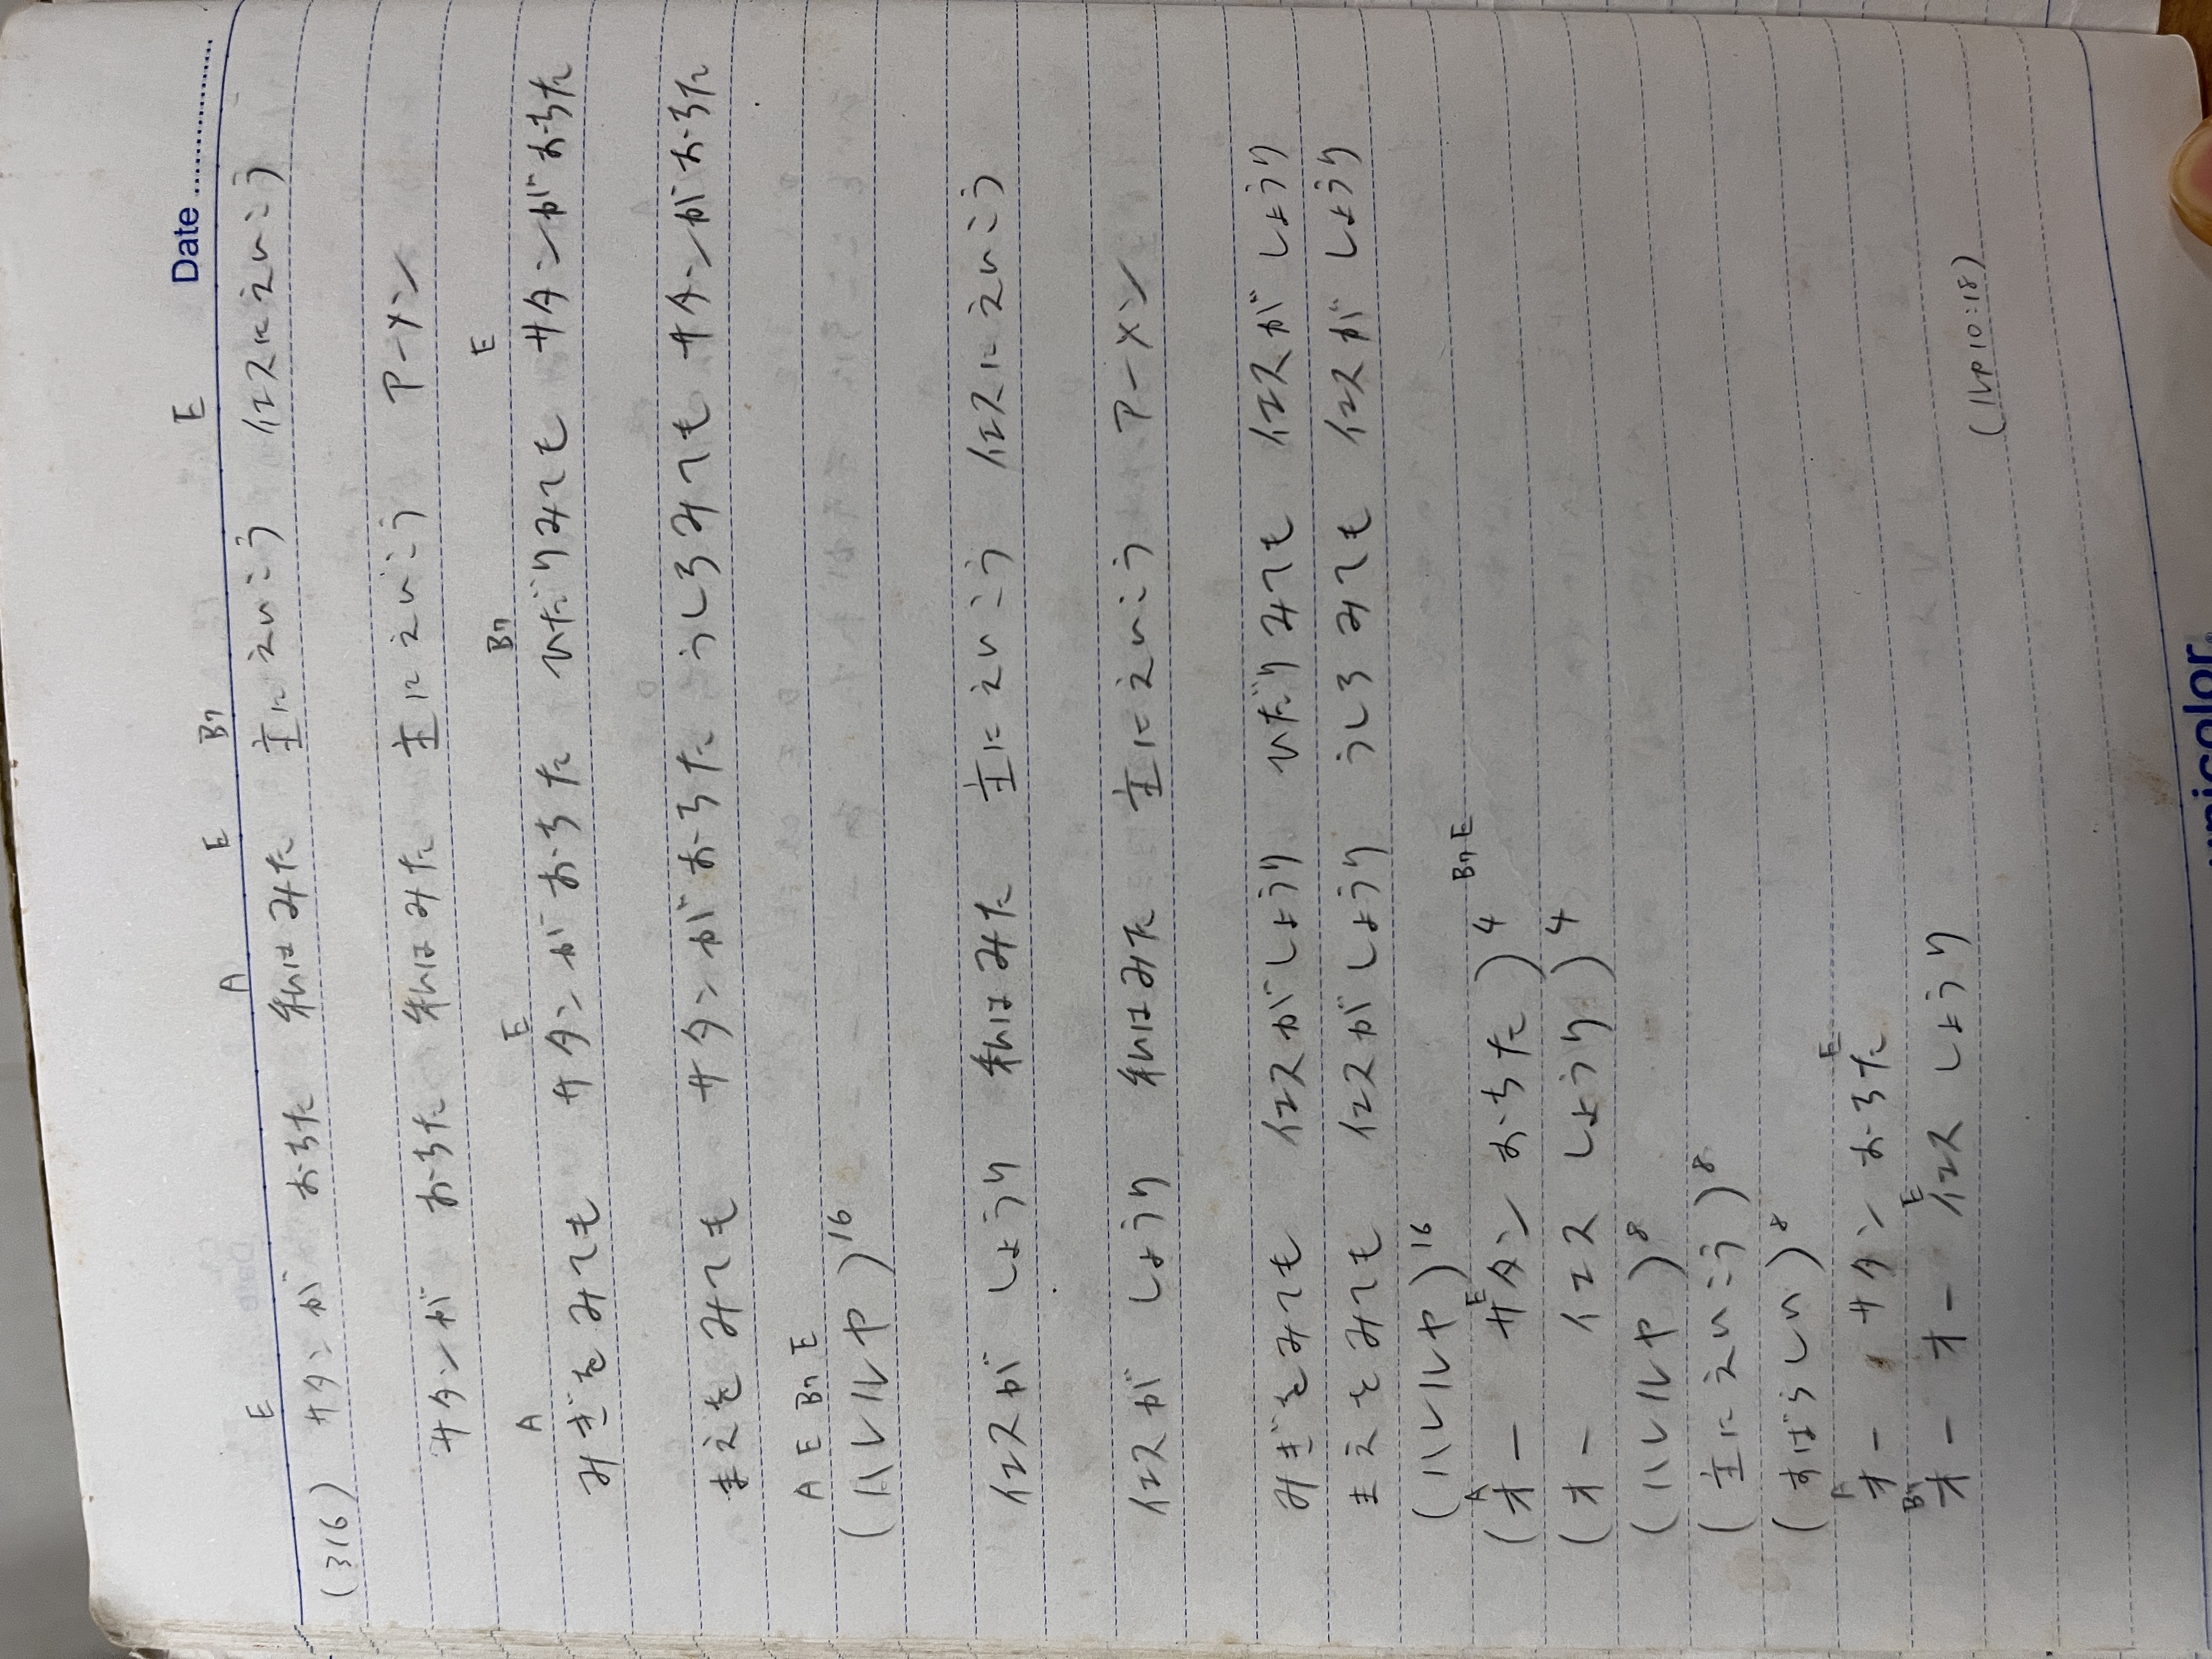 Date
E A E B7 E
(316) サタンが おちた 私はみた 主にえいこう イエスにえいこう
サタンが おちた 私はみた 主にえいこう アーメン
A E B7 E
みぎをみても サタンがおちた ひだりみても サタンがおちた
まえをみても サタンがおちた うしろみても サタンがおちた
A E B7 E
(ハレルヤ)16
イエスが しょうり 私はみた 主にえいこう イエスにえいこう
イエスが しょうり 私はみた 主にえいこう アーメン
みぎをみても イエスがしょうり ひだりみても イエスがしょうり
まえをみても イエスがしょうり うしろみても イエスがしょうり
(ハレルヤ)16
A E B7 E
(オー サタン おちた)4
(オー イエス しょうり)4
(ハレルヤ)8
(主にえいこう)8
(すばらしい)8
A E
オー サタン おちた
B7 E
オー オー イエス しょうり
(ルカ10:18)
unicolor